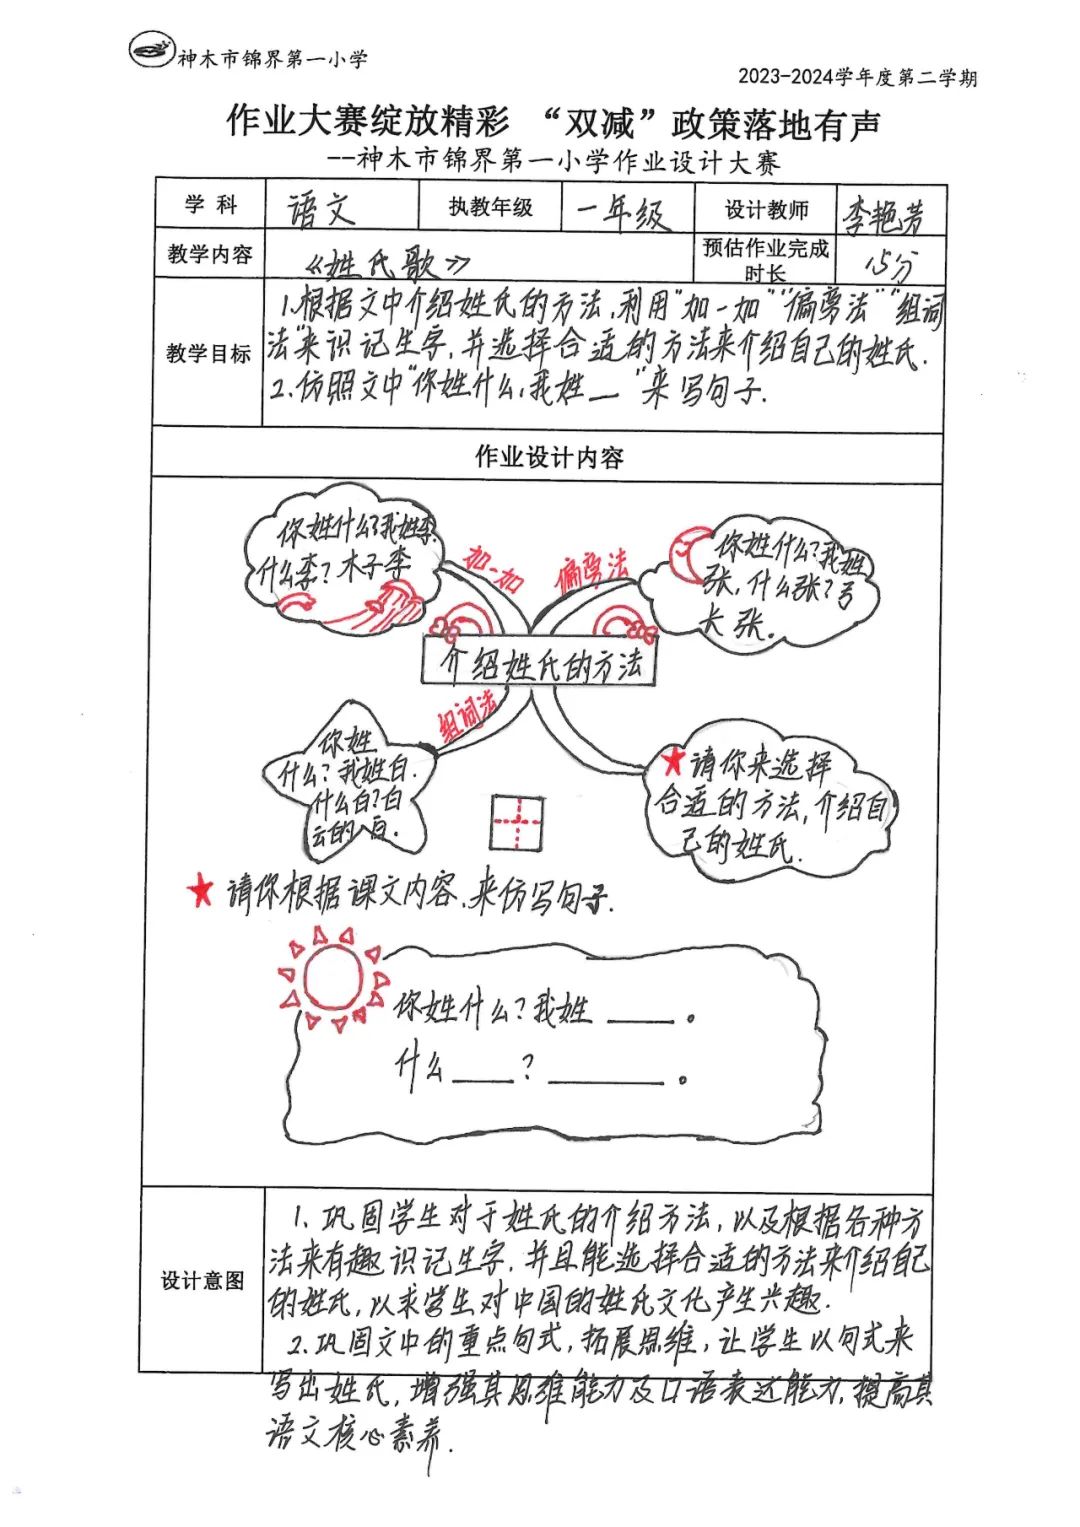 神木市锦界第一小学
2023-2024学年度第二学期
作业大赛绽放精彩 “双减”政策落地有声
--神木市锦界第一小学作业设计大赛
学科 语文 执教年级 一年级 设计教师 李艳芳
教学内容 《姓氏歌》 预估作业完成时长 15分
教学目标
1.根据文中介绍姓氏的方法,利用“加一加”“偏旁法”“组词
法”来识记生字,并选择合适的方法来介绍自己的姓氏.
2.仿照文中“你姓什么,我姓__”来写句子.
作业设计内容
你姓什么?我姓李.
什么李?木子李
加一加
偏旁法
你姓什么?我姓
张,什么张?弓
长张。
介绍姓氏的方法
组词法
你姓
什么?我姓白.
什么白?白
云的白.
★请你来选择
合适的方法,介绍自
己的姓氏.
★请你根据课文内容,来仿写句子.
你姓什么?我姓____。
什么____?_______。
设计意图
1.巩固学生对于姓氏的介绍方法,以及根据各种方
法来有趣识记生字,并且能选择合适的方法来介绍自己
的姓氏,以求学生对中国的姓氏文化产生兴趣.
2.巩固文中的重点句式,拓展思维,让学生以句式来
写出姓氏,增强其思维能力及口语表达能力,提高其
语文核心素养.